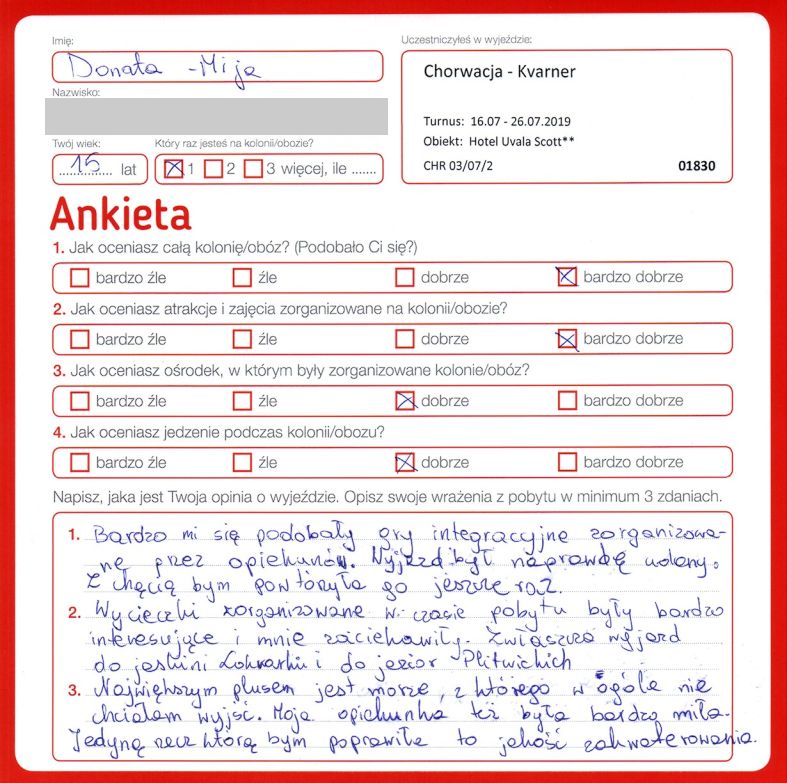 Imię:
Donata - Mija
Uczestniczyłeś w wyjeździe:
Chorwacja - Kvarner
Turnus: 16.07 - 26.07.2019
Obiekt: Hotel Uvala Scott**
CHR 03/07/2 01830
Nazwisko:
Twój wiek: Który raz jesteś na kolonii/obozie?
15 lat 1 2 3 więcej, ile .......
Ankieta
1. Jak oceniasz całą kolonię/obóz? (Podobało Ci się?)
bardzo źle źle dobrze bardzo dobrze
2. Jak oceniasz atrakcje i zajęcia zorganizowane na kolonii/obozie?
bardzo źle źle dobrze bardzo dobrze
3. Jak oceniasz ośrodek, w którym były zorganizowane kolonie/obóz?
bardzo źle źle dobrze bardzo dobrze
4. Jak oceniasz jedzenie podczas kolonii/obozu?
bardzo źle źle dobrze bardzo dobrze
Napisz, jaka jest Twoja opinia o wyjeździe. Opisz swoje wrażenia z pobytu w minimum 3 zdaniach.
1. Bardzo mi się podobały gry integracyjne zorganizowa-
ne przez opiekunów. Wyjazd był naprawdę udany.
Z chęcią bym powtórzyła go jeszcze raz.
2. Wycieczki zorganizowane w czasie pobytu były bardzo
interesujące i mnie zaciekawiły. Zwłaszcza wyjazd
do jaskini Lokvarki i do jezior Plitwickich
3. Największym plusem jest morze, z którego w ogóle nie
chciałam wyjść. Moja opiekunka też była bardzo miła.
Jedyną rzecz którą bym poprawiła to jakość zakwaterowania.